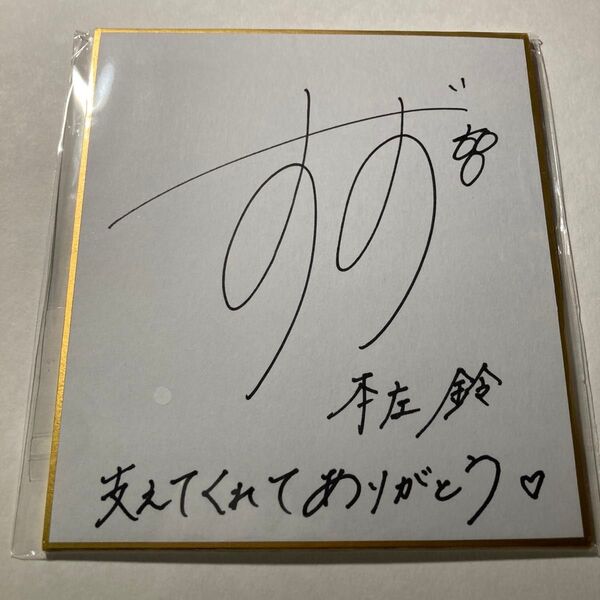 すず
本左 鈴
支えてくれてありがとう♡